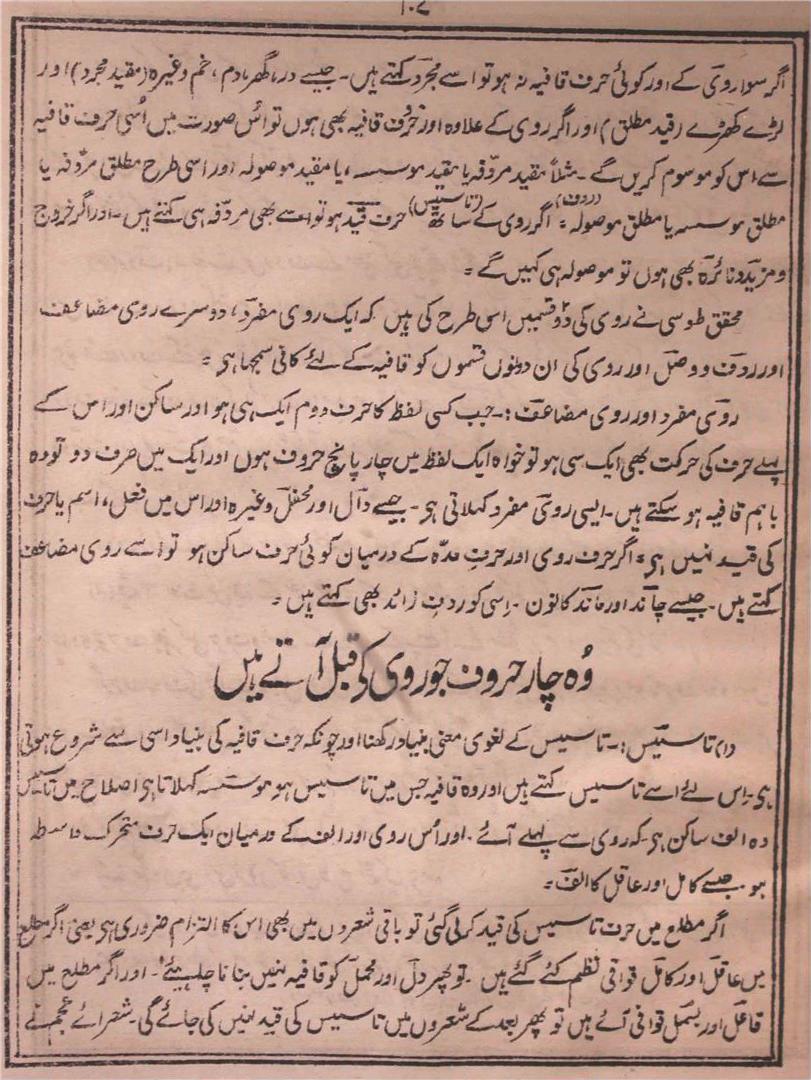 ۱۰۷
اگر سوا روی کے اور کوئی حرف قافیہ نہ ہو تو اسے مجرد کہتے ہیں۔ جیسے در، گھر، دم، خم وغیرہ (مقید مجرد) اور
لڑے کھڑے (قید مطلق) اور اگر روی کے علاوہ اور حروف قافیہ بھی ہوں تو اس صورت میں اُسی حرف قافیہ
سے اس کو موسوم کریں گے۔ مثلاً مقید مردّفہ یا مقید موسسہ، یا مقید موصولہ اور اسی طرح مطلق مردّفہ یا
مطلق موسسہ یا مطلق موصولہ = اگر روی کے (ردف) ساتھ (تاسیس) حرف قید ہو تو اسے بھی مردّفہ ہی کہتے ہیں۔ اور اگر خروج
و مزید و نائرہ بھی ہوں تو موصولہ ہی کہیں گے =
محقق طوسی نے روی کی دو قسمیں اس طرح کی ہیں کہ ایک روی مفرد، دوسرے روی مضاعف
اور ردف و وصل اور روی کی ان دونوں قسموں کو قافیہ کے لئے کافی سمجھا ہی =
روی مفرد اور روی مضاعف :۔ جب کسی لفظ کا حرف دوم ایک ہی ہو اور ساکن اور اس کے
پہلے حرف کی حرکت بھی ایک سی ہو تو خواہ ایک لفظ میں چار پانچ حروف ہوں اور ایک میں صرف دو تو وہ
باہم قافیہ ہو سکتے ہیں۔ ایسی روی مفرد کہلاتی ہی۔ جیسے دال اور محفل وغیرہ اور اس میں فعل، اسم یا حرف
کی قید نہیں ہی = اگر حرف روی اور حرف مدّہ کے درمیان کوئی حرف ساکن ہو تو اسے روی مضاعف
کہتے ہیں۔ جیسے چاند اور ماند کا نون۔ اِسی کو ردف زائد بھی کہتے ہیں =
وُہ چار حروف جو روی کی قبل آتے ہیں
(۱) تاسیس :۔ تاسیس کے لغوی معنی بنیاد رکھنا اور چونکہ حرف قافیہ کی بنیاد اسی سے شروع ہوتی
ہی۔ اِس لئے اسے تاسیس کہتے ہیں اور وہ قافیہ جس میں تاسیس ہو موسّسہ کہلاتا ہی اصلاح میں تاسیس
وہ الف ساکن ہی۔ کہ روی سے پہلے آئے۔ اور اُس روی اور الف کے درمیان ایک حرف متحرک واسطہ
ہو۔ جیسے کامل اور عاقل کا الف =
اگر مطلع میں حرف تاسیس کی قید کر لی گئی تو باقی شعروں میں بھی اس کا التزام ضروری ہی یعنی اگر مطلع
میں عاقل اور کامل قوافی نظم کئے گئے ہیں۔ تو پھر دل اور محمل کو قافیہ نہیں بنانا چاہیئے۔ اور اگر مطلع میں
قاتل اور بسمل قوافی آئے ہیں تو پھر بعد کے شعروں میں تاسیس کی قید نہیں کی جائے گی۔ شعرائے عجم نے